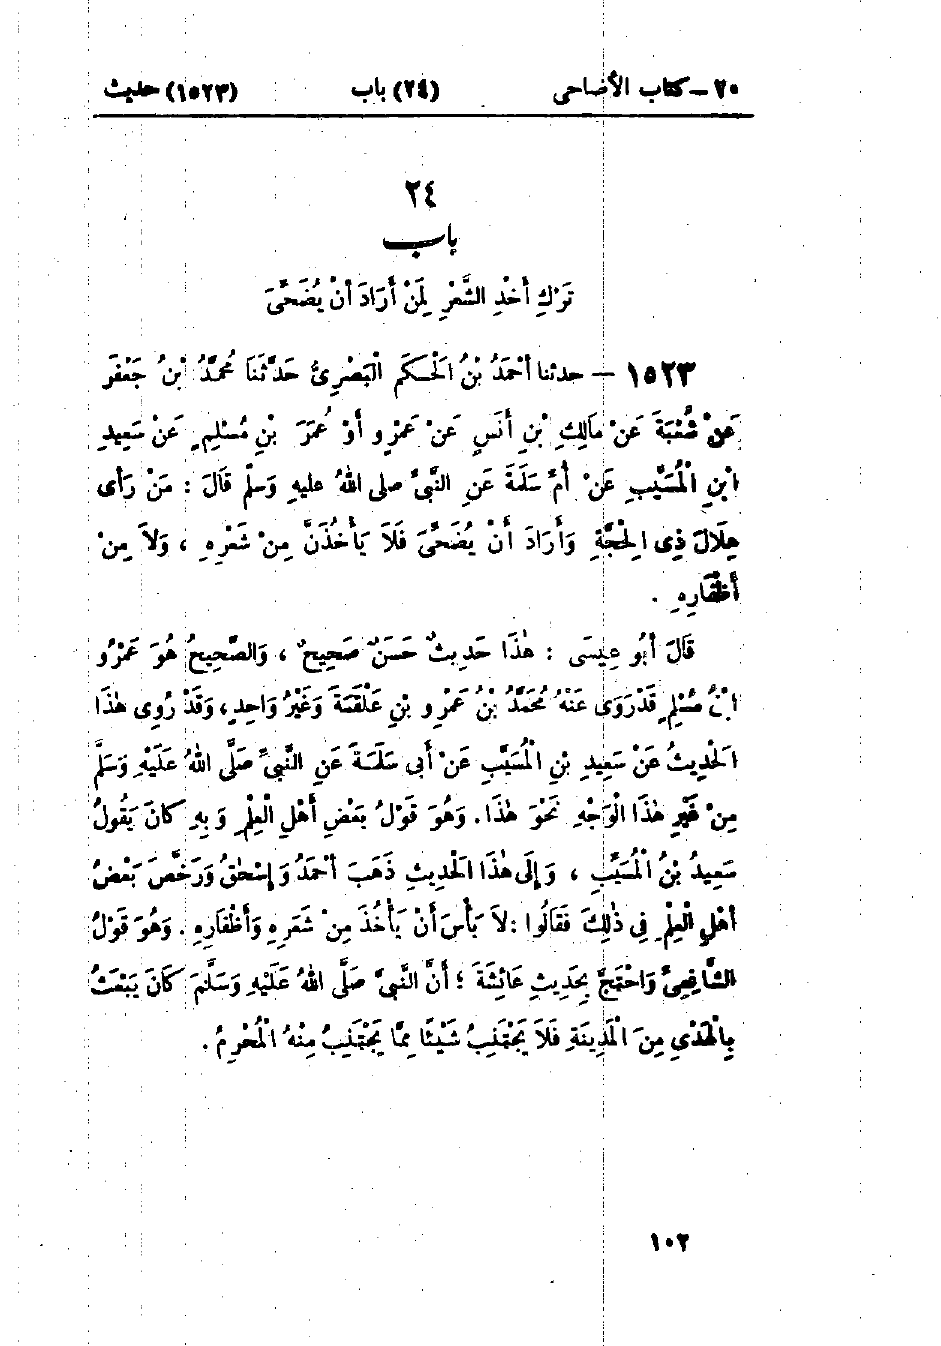 ٢٠ – كتاب الأضاحى (٢٤) باب (١٥٢٣) حديث
٢٤
باب
تَرْكِ أَخْذِ الشَّعْرِ لِمَنْ أَرَادَ أَنْ يُضَحِّىَ
١٥٢٣ — حدثنا أَحْمَدُ بْنُ الْحَكَمِ الْبَصْرِىُّ حَدَّثَنَا مُحَمَّدُ ابْنُ جَعْفَرَ
عَنْ شُعْبَةَ عَنْ مَالِكِ بْنِ أَنَسٍ عَنْ عَمْرٍو أَوْ عُمَرَ بْنِ مُسْلِمٍ عَنْ سَعِيدِ
ابْنِ الْمُسَيَّبِ عَنْ أُمِّ سَلَمَةَ عَنِ النَّبىِّ صلى اللهُ عليهِ وَسَلّم قَالَ : مَنْ رَأى
هِلَالَ ذِى الْحِجَّةِ وَأَرَادَ أَنْ يُضَحِّىَ فَلَا يَأْخُذَنَّ مِنْ شَعْرِهِ ، وَلاَ مِنْ
أظْفَارِهِ .
قَالَ أبُو عِيسَى : هٰذَا حَدِيثٌ حَسَنٌ صَحِيحٌ ، وَالصَّحِيحُ هُوَ عَمْرُو
ابْنُ مُسْلِمٍ قَدْ رَوَى عَنْهُ مُحَمَّدُ بْنُ عَمْرِو بْنِ عَلْقَمَةَ وَغَيْرُ وَاحِدٍ، وَقَدْ رُوِى هٰذَا
الْحَدِيثُ عَنْ سَعِيدِ بْنِ الْمُسَيَّبِ عَنْ أَبى سَلَمَةَ عَنِ النَّبىِّ صَلَّى اللهُ عَلَيْهِ وَسَلَّم
مِنْ غَيْرِ هٰذَا الْوَجْهِ نَحْوَ هٰذَا . وَهُوَ قَوْلُ بَعْضِ أَهْلِ الْعِلْمِ وَبِهِ كانَ يَقُولُ
سَعِيدُ بْنُ الْمُسَيَّبِ ، وَإِلَى هٰذَا الْحَدِيثِ ذَهَبَ أَحْمَدُ وَإِسْحٰقُ وَرَخَّصَ بَعْضُ
أهْلِ الْعِلْمِ فِى ذٰلِكَ فَقَالُوا : لاَ بَأْسَ أَنْ يَأْخُذَ مِنْ شَعَرِهِ وَأَظْفَارِهِ . وَهُوَ قَوْلُ
الشَّافِعِىِّ وَاحْتَجَّ بِحَدِيثِ عَائِشَةَ ؛ أَنَّ النَّبىَّ صَلَّى اللهُ عَلَيْهِ وَسَلَّمَ كَانَ يَبْعَثُ
بِالْهَدْيِ مِنَ الْمَدِينَةِ فَلَا يَجْتَنِبُ شَيْئًا مِمَّا يَجْتَنِبُ مِنْهُ الْمُحْرِمُ .
١٠٢